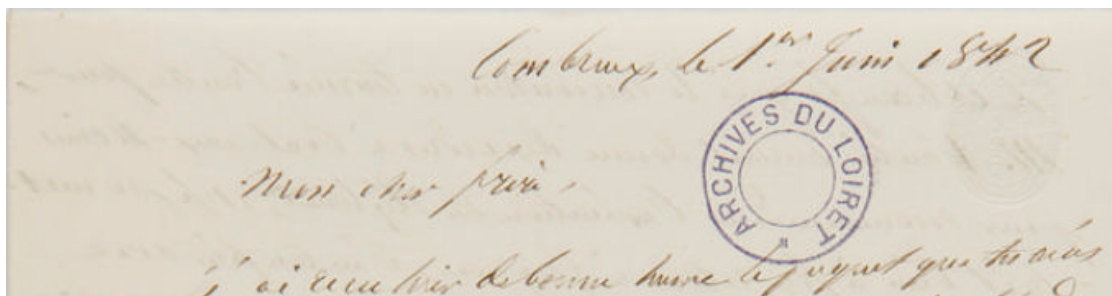 Combreux, le 1er Juin 1842
ARCHIVES DU LOIRET
Mon cher frère,
J'ai reçu hier de bonne heure le paquet que tu m'as